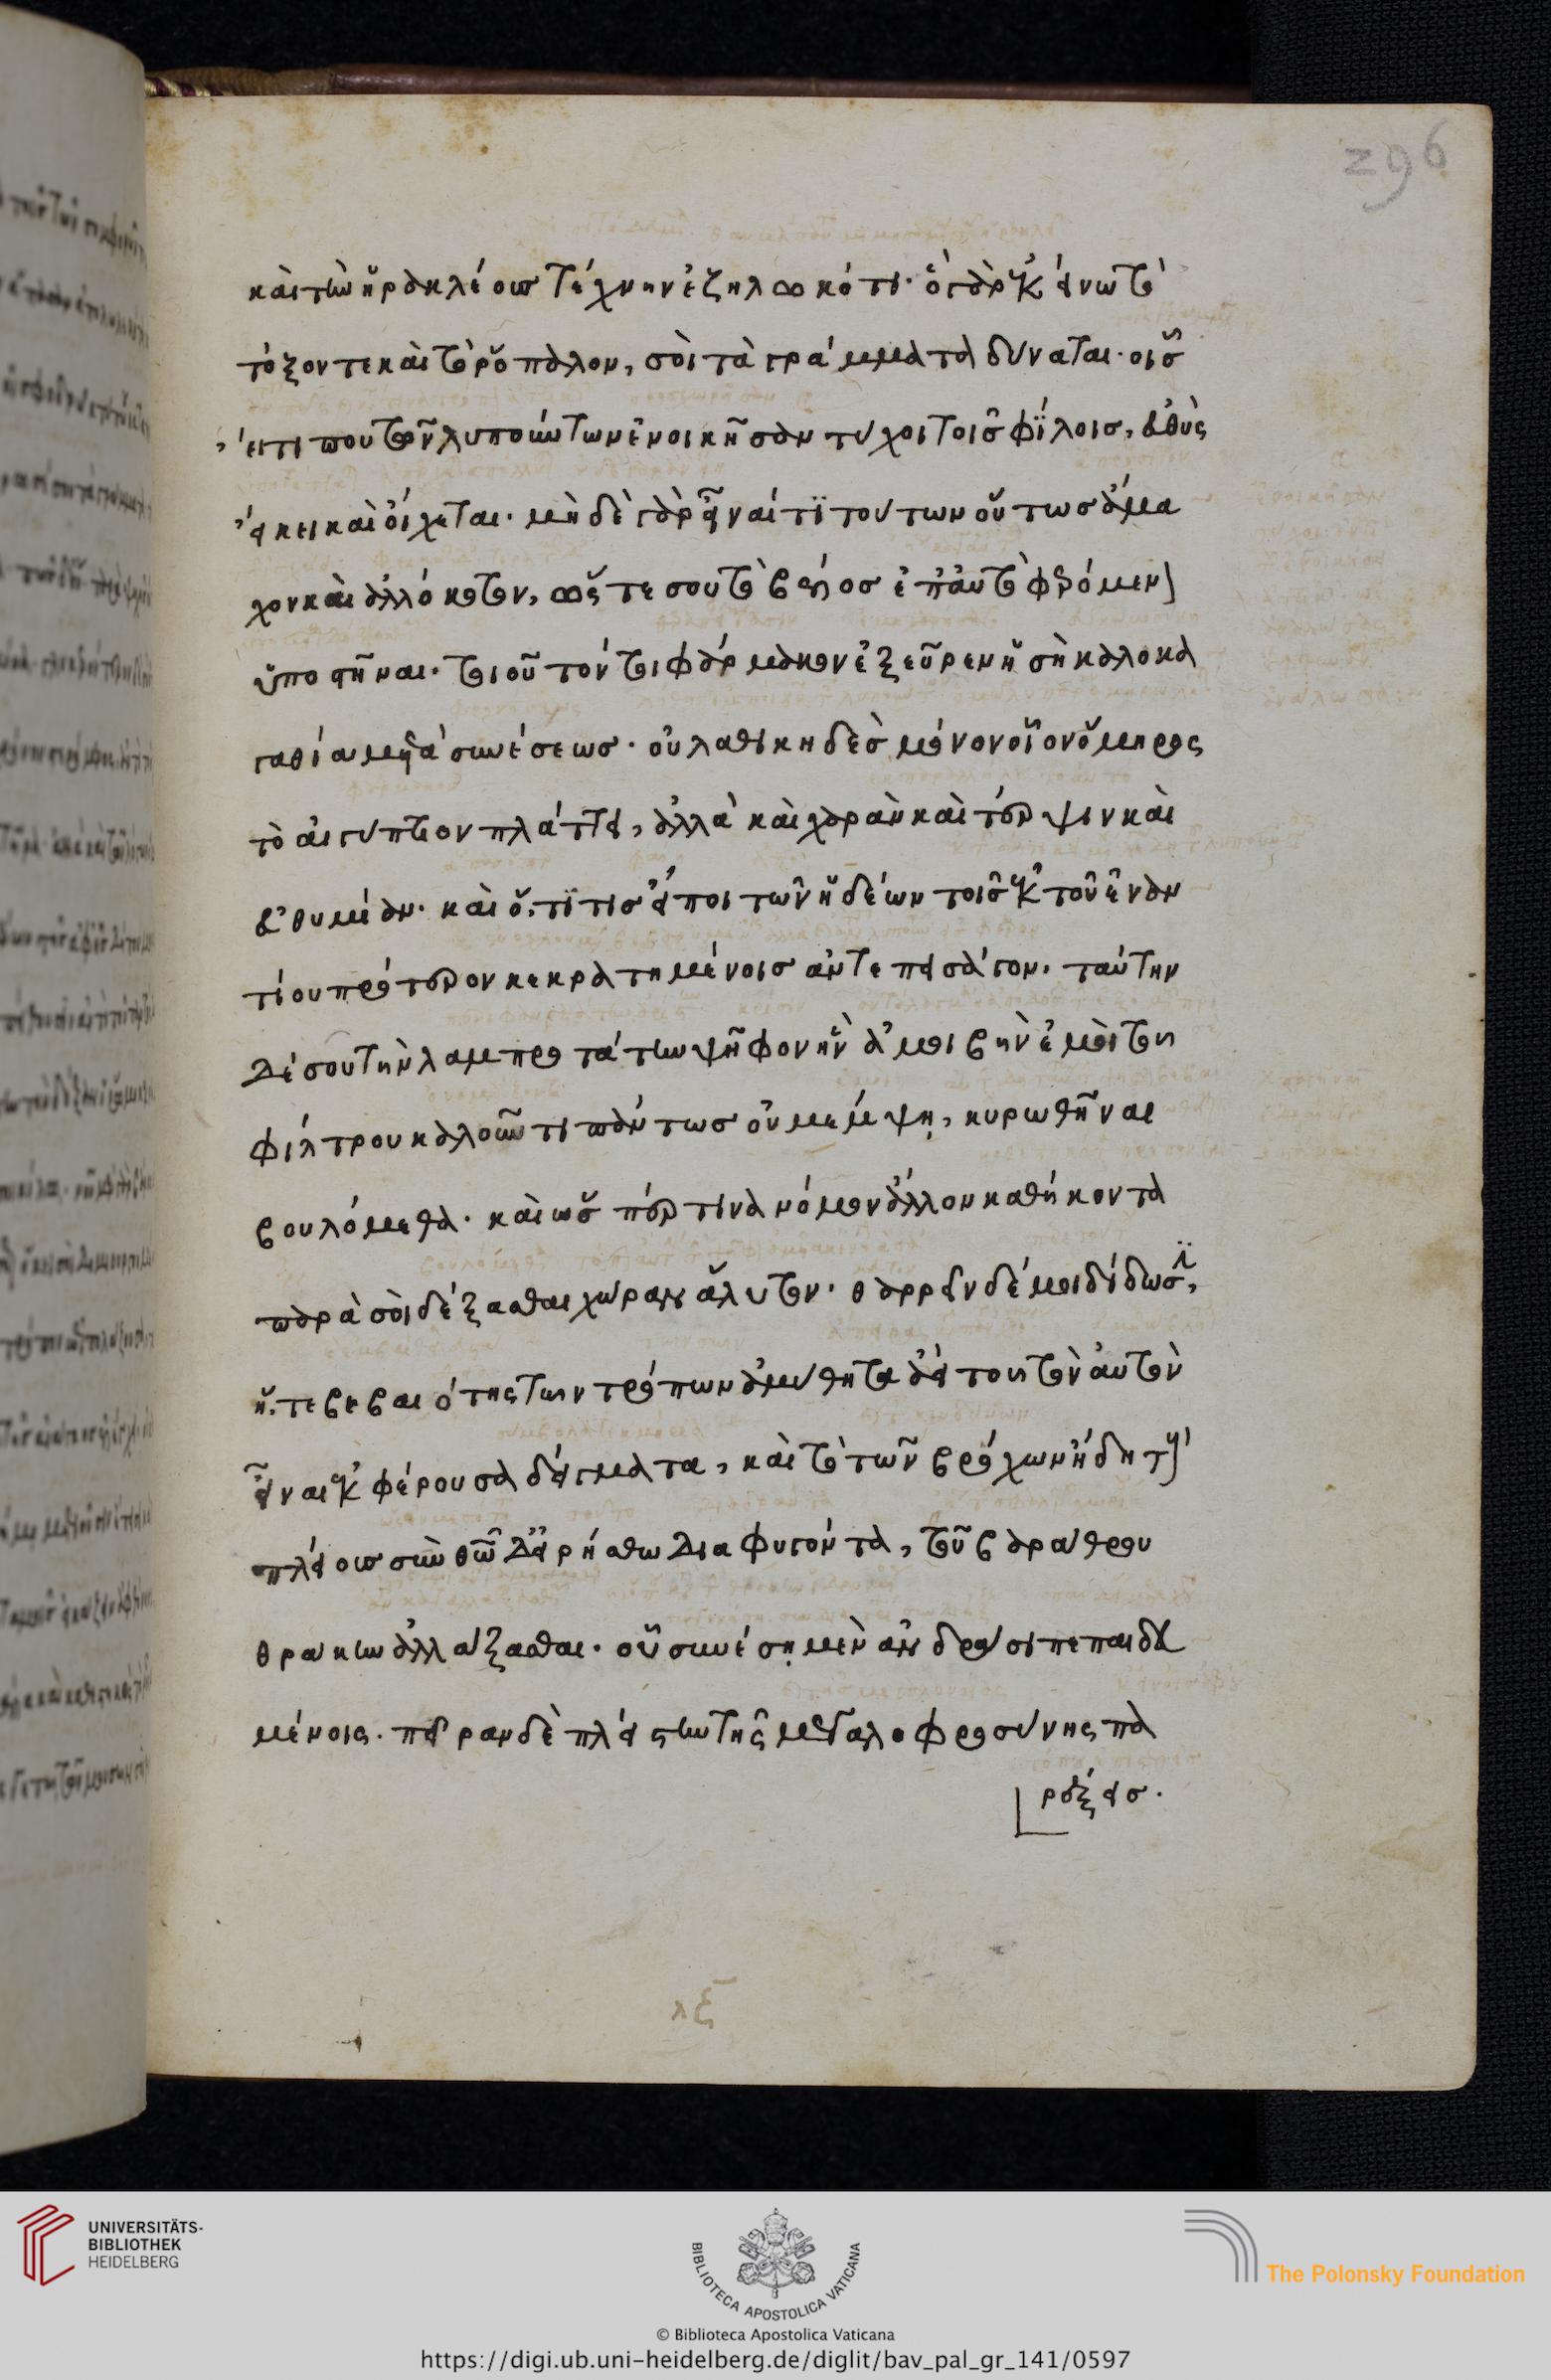 296
καὶ τὴν ἡρακλέους τέχνην ἐζηλωκότι. ὃ γὰρ ἐκείνω τὸ
τόξον τε καὶ τὸ ῥόπαλον, σοὶ τὰ γράμματα δύναται. οἷς
εἴ τί που τῶν λυπούντων ἐνοικῆσαν τύχοι τοῖς φίλοις, εὐθὺς
εἴκει καὶ οἴχεται. μηδὲ γὰρ εἶναί τι τούτων οὕτως ἄμα
χον καὶ ἀλλόκοτον, ὥστε σου τὸ βέλος ἐπ' αὐτὸ φερόμεν
ὑποστῆναι. τοιοῦτόν τοι φάρμακον ἐξεῦρεν ἡ σὴ καλοκα
γαθία μετὰ συνέσεως. οὐ λαθικηδὲς μόνον οἷον ὅμηρος
τὸ αἰγύπτιον πλάττει, ἀλλὰ καὶ χαρὰν καὶ τέρψιν καὶ
εὐθυμίαν. καὶ ὅ,τι τις εἴποι τῶν ἡδέων τοῖς ἐκ τοῦ ἐναν
τίου πρότερον κεκρατημένοις ἀντεπεισάγον. ταύτην
δέ σου τὴν λαμπροτάτην ψῆφον ἣν ἀμοιβὴν ἐμοὶ τοῦ
φίλτρου καλῶν τι πάντως οὐ μέμψῃ, κυρωθῆναι
βουλόμεθα. καὶ ὡσπέρ τινα νόμον ἄλλον καθήκοντα
παρὰ σοὶ δέξασθαι χώραν ἄλυτον. θαρρεῖν δέ μοι δίδωσι,
ἥ,τε βεβαιότης τῶν τρόπων ἀμύθητα ἀεὶ τοῦ τὸν αὐτὸν
εἶναι ἐκφέρουσα δείγματα, καὶ τὸ τῶν βρόχων ἤδη τ
πλείους σὺν θεῷ δ' εἰρήσθω διαφυγόντα, τοῦ βαράθρου
θράκην ἀλλάξασθαι. οὗ συνέσῃ μὲν ἀνδράσι πεπαιδευ
μένοις. πεῖραν δὲ πλείστην τῆς μεγαλοφροσύνης πα
ρέξεις.
λξ
UNIVERSITÄTS-
BIBLIOTHEK
HEIDELBERG
BIBLIOTECA APOSTOLICA VATICANA
The Polonsky Foundation
© Biblioteca Apostolica Vaticana
https://digi.ub.uni-heidelberg.de/diglit/bav_pal_gr_141/0597